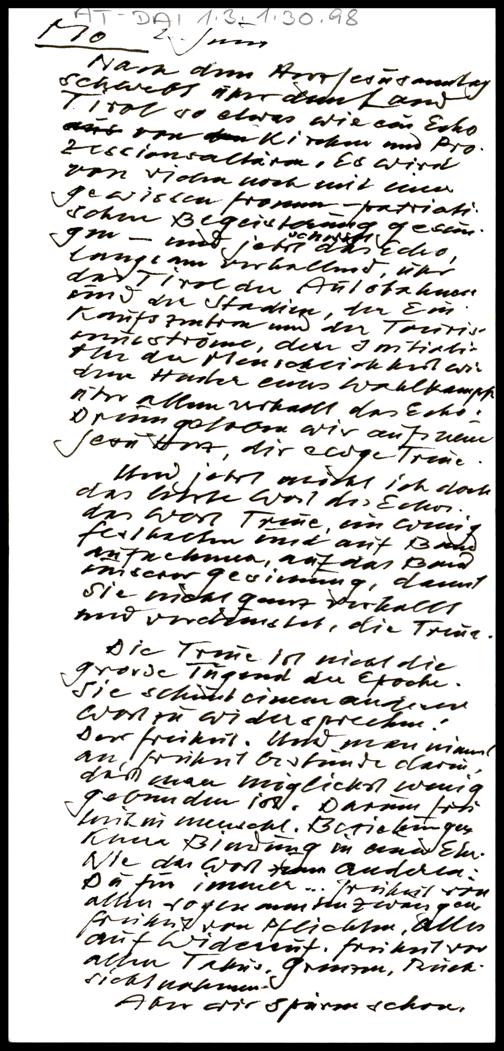 AT-DAI 1.3.1.30.98
Mo 2. Juni
Nach dem Herz Jesu Sonntag
schwebt über dem Land
Tirol so etwas wie ein Echo
von Kirchen und Pro-
zessionsaltären. Es wird
von vielen noch mit einer
gewissen fromm-patrioti-
schen Begeisterung gesun-
gen – und jetzt das Echo,
langsam verhallend, über
das Tirol der Autobahnen
und der Stadien, der Ein-
kaufszentren und der Touris-
musströme, der
der Menschlichkeit wie
dem eines Wahlkampfs
über allem verhallt das Echo:
Drum geloben wir aufs neue
Jesu Herz, die ewge Treue.
Und jetzt möcht ich doch
das letzte Wort des Echos,
das Wort Treue, ein wenig
festhalten und auf Band
aufnehmen, auf das Band
unserer Gesinnung, damit
sie nicht ganz verhallt
und verdunstet, die Treue.
Die Treue ist nicht die
große Tugend der Epoche.
Sie scheint einem anderen
Wort zu widersprechen:
Der Freiheit. Und man nimmt
an, Freiheit bestünde darin,
daß man möglichst wenig
gebunden ist. Darum Frei-
heit in menschl. Beziehungen
Keine Bindung in einer Ehe.
Nie das Wort zum anderen:
Du für immer ... Freiheit von
allen sogenannten Zwängen
Freiheit von Pflichten, alles
auf Widerruf. Freiheit von
allen Tabus, Grenzen, Rück-
sichtnahmen.
Aber wir spüren schon,